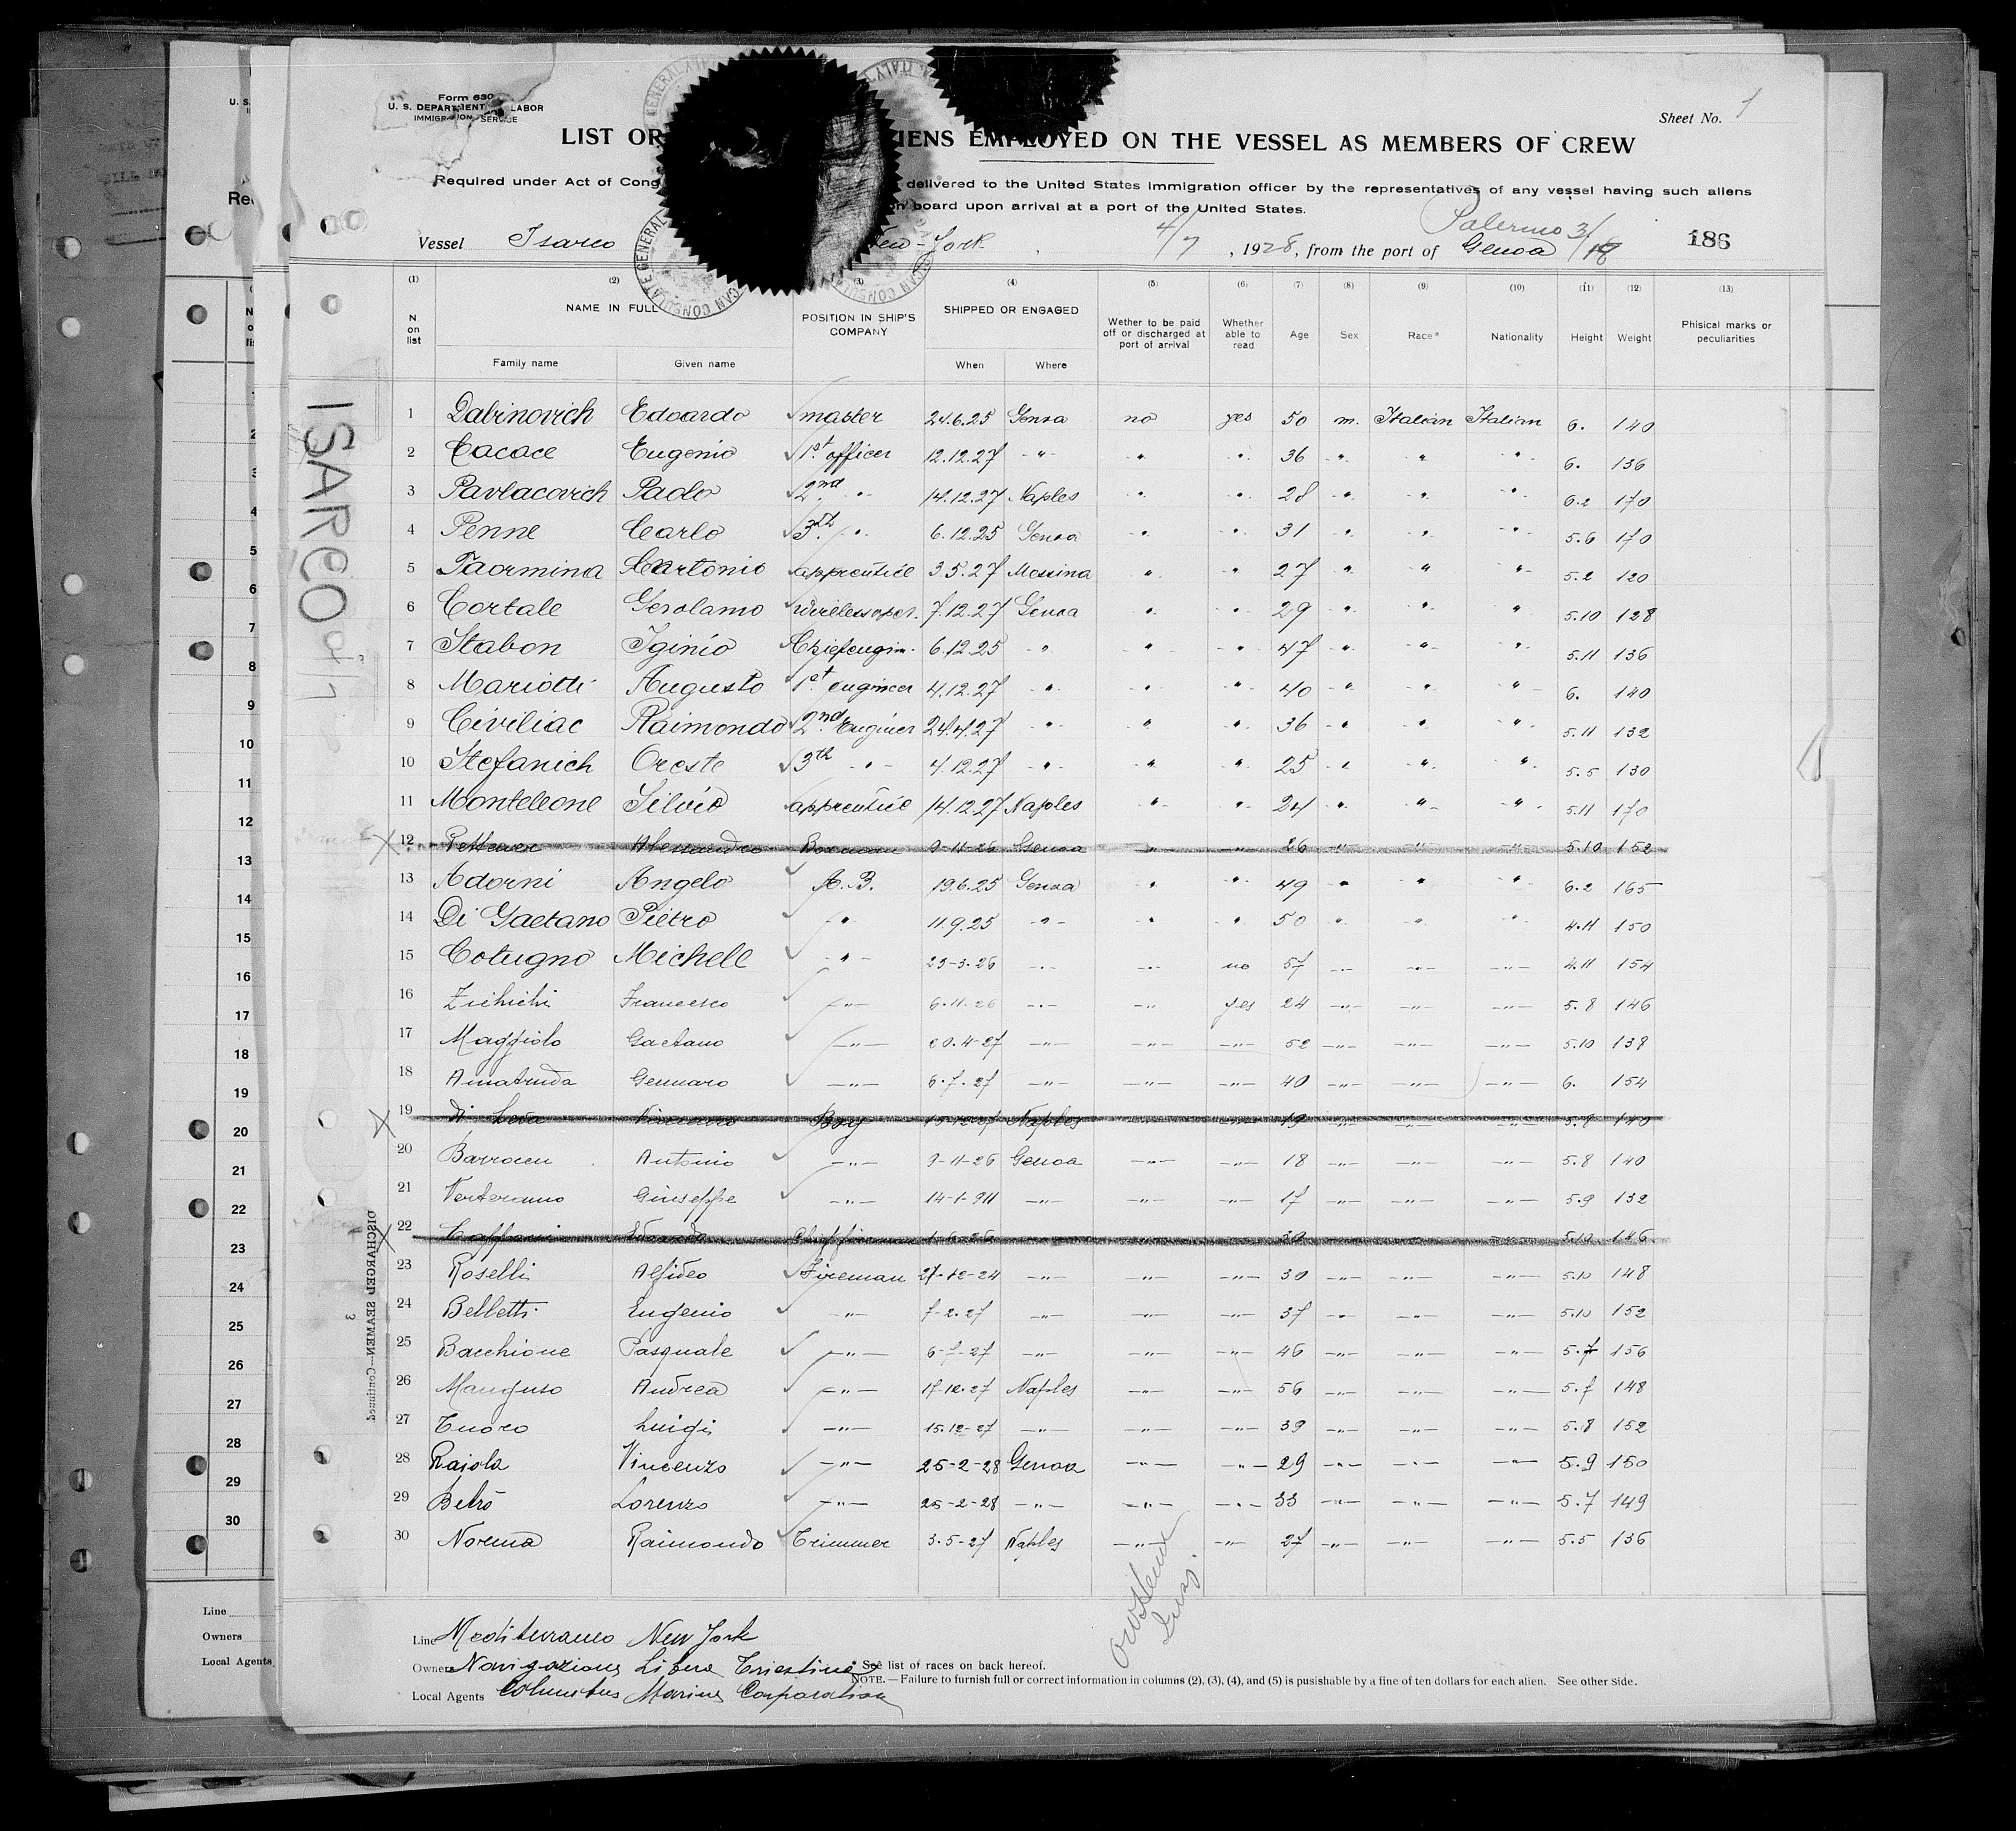 Form 630
U. S. DEPARTMENT LABOR
IMMIGRATION SERVICE
Sheet No. 1
LIST OR IENS EMPLOYED ON THE VESSEL AS MEMBERS OF CREW
Required under Act of Cong delivered to the United States immigration officer by the representatives of any vessel having such aliens
on board upon arrival at a port of the United States.
Vessel Isarco New-York 4/7, 1928, from the port of Palermo Genoa
186
ISARCO 4/7
(1) (2) (3) (4) (5) (6) (7) (8) (9) (10) (11) (12) (13)
N on list NAME IN FULL POSITION IN SHIP'S COMPANY SHIPPED OR ENGAGED Wether to be paid off or discharged at port of arrival Whether able to read Age Sex Race* Nationality Height Weight Phisical marks or peculiarities
Family name Given name When Where
1 Dabinovich Edoardo master 24.6.25 Genoa no yes 50 m. Italian Italian 6. 140
2 Cacace Eugenio 1st officer 12.12.27 " " " 36 " " " 6. 136
3 Pavlacovich Paolo 2nd " 14.12.27 Naples " " 28 " " " 6.2 170
4 Penne Carlo 3th " 6.12.25 Genoa " " 31 " " " 5.6 170
5 Taormina apprentice 3.5.27 Messina " " 27 " " " 5.2 120
6 Cortale Gerolamo wireless oper. 7.12.27 Genoa " " 29 " " " 5.10 128
7 Stabon Iginio Chief engin. 6.12.25 " " " 47 " " " 5.11 136
8 Mariotti Augusto 1st engineer 4.12.27 " " " 40 " " " 6. 140
9 Civiliac Raimondo 2nd Enginer 24.4.27 " " " 36 " " " 5.11 132
10 Stefanich Oreste 3th " 4.12.27 " " " 25 " " " 5.5 130
11 Monteleone Silvio apprentice 14.12.27 Naples " " 24 " " " 5.11 170
12 Alessandro 9-11-26 Genoa " " 26 " " " 5.10 152
13 Adorni Angelo A.B. 19.6.25 Genoa " " 49 " " " 6.2 165
14 Di Gaetano Pietro " 11.9.25 " " " 50 " " " 4.11 150
15 Cotugno Michell " 23-3-26 " " no 57 " " " 4.11 154
16 Zichichi Francesco " 6-11-26 " " yes 24 " " " 5.8 146
17 Maggiolo Gaetano " 20.4-27 " " " 52 " " " 5.10 138
18 Amatruda Gennaro " 6.7.27 " " " 40 " " " 6. 154
19 Boy Naples " " 19 " " " 5.8 140
20 Antonio " 9-11-26 Genoa " " 18 " " " 5.8 140
21 Giuseppe " 14-1-911 " " " 17 " " " 5.9 132
22 Chief fireman 1-6-26 " " " 39 " " " 5.10 146
23 Roselli Alfideo Fireman 27-12-24 " " " 30 " " " 5.10 148
24 Belletti Eugenio " 7-2.27 " " " 37 " " " 5.10 152
25 Bacchione Pasquale " 6-7-27 " " " 46 " " " 5.7 156
26 Manguso Andrea " 17-12.27 Naples " " 56 " " " 5.7 148
27 Tuoro Luigi " 15.12-27 " " " 39 " " " 5.8 152
28 Rajola Vincenzo " 25-2-28 Genoa " " 29 " " " 5.9 150
29 Betrò Lorenzo " 25-2-28 " " " 33 " " " 5.7 149
30 Norma Raimondo Trimmer 3-5-27 Naples " " 27 " " " 5.5 136
DISCHARGED SEAMEN—Continued
3
Line Mediterraneo New York
Owners Navigazione Libera Triestina
* See list of races on back hereof.
NOTE.—Failure to furnish full or correct information in columns (2), (3), (4), and (5) is pusishable by a fine of ten dollars for each alien. See other side.
Local Agents Columbus Marine Corporation
Line
Owners
Local Agents